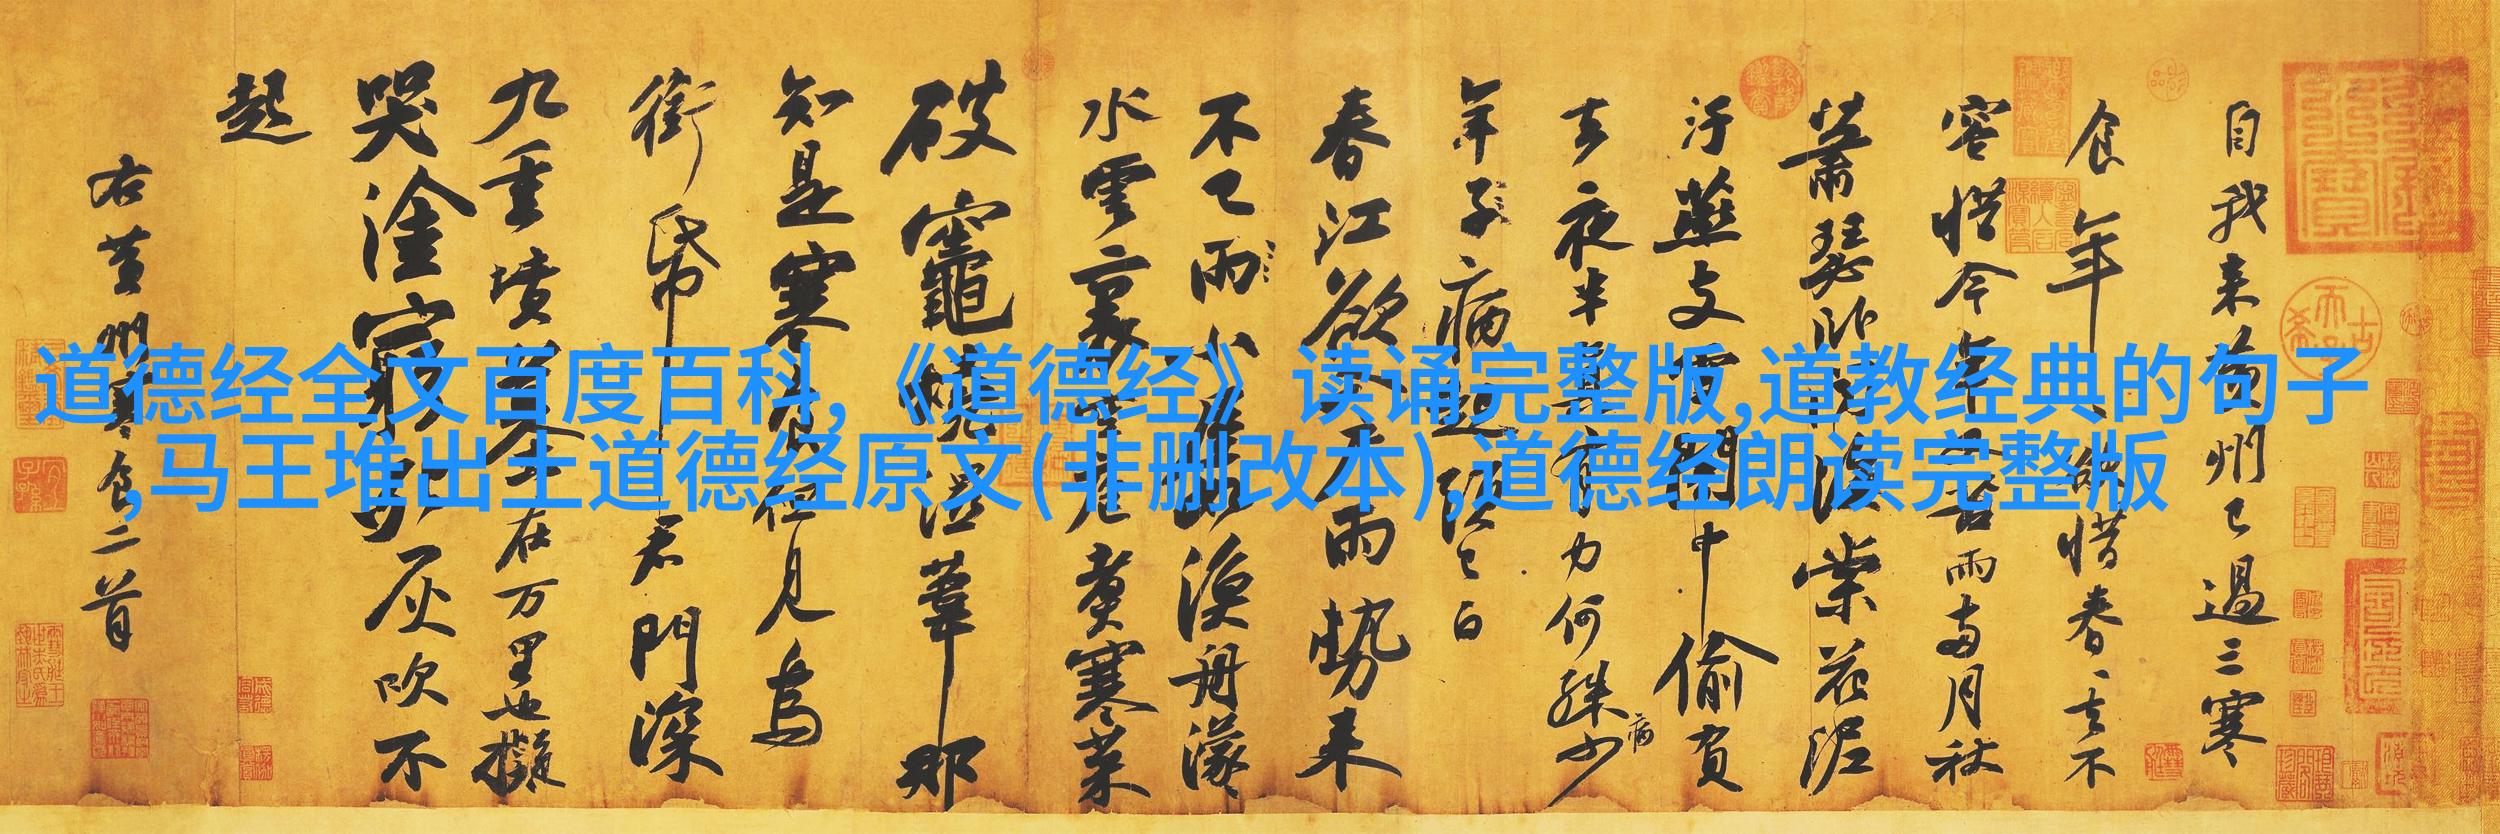 道德经全文百度百科,《道德经》读诵完整版,道教经典的句子
,马王堆出土道德经原文(非删改本),道德经朗读完整版
自我来黄州已過三寒
食年々欲惜春々去不
容惜今年又苦雨兩月秋
蕭瑟卧聞海棠花泥
汙燕支雪闇中偷負
去夜半真有力何殊少
年子病起須已白
春江欲入户雨勢来
不已雨小屋如漁舟濛々
水雲裏空庖煑寒菜
破竈燒濕葦那
知是寒食但見烏
銜帋君門深
九重墳墓在万里也擬
哭塗窮死灰吹不
起
右黄州寒食二首